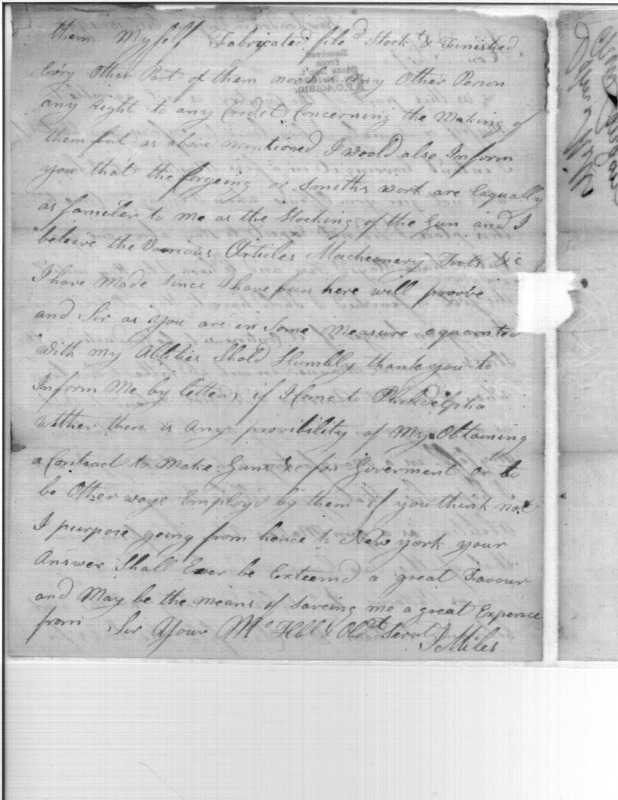 them Myself Fabricated file'd Stock't & Furnished
Evry Other Part of them nor has Any Other Person
any Right to any Credit Concerning the Making of
them but as above mentioned I woold also Inform
you that the forgeing or Smiths work are Equally
as familer to me as the Stocking of the Gun and I
beleive the Various Articles Macheonery Tools &c
I have Made Since I have been here will proove
and Sir as you are in Some Measure aquainted
with my Abilies I hold Humbly thank you to
Inform Me by letter, if I Come to Philidelpha
wither there is Any provibility of My Obtaining
a Contract to Make Guns &c for Goverment or to
be Other ways Employd by them if you think not
I purpose going from hence to New york your
Answer Shall Ever be Exteemd a great Favour
and May be the means of Saveing me a great Expence
from Sir Your Mo Hbl & Obdt Servt
J Miles
Received
from
State Dep't
R.P.O. 401810